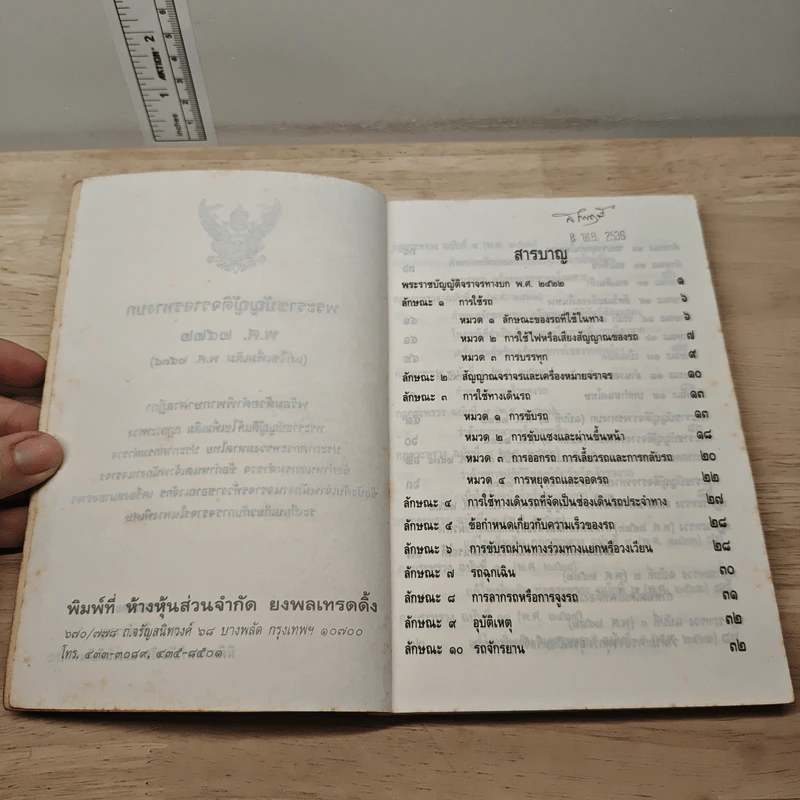 พิมพ์ที่ ห้างหุ้นส่วนจำกัด ยงพลเทรดดิ้ง
๖๗๐/๗๗๘ ถ.จรัญสนิทวงศ์ ๖๘ บางพลัด กรุงเทพฯ ๑๐๗๐๐
โทร. ๔๓๓-๓๐๘๙, ๔๓๕-๘๕๐๑
8 พ.ย. 2536
สารบาญ
พระราชบัญญัติจราจรทางบก พ.ศ. ๒๕๒๒ ๑
ลักษณะ ๑ การใช้รถ ๖
หมวด ๑ ลักษณะของรถที่ใช้ในทาง ๖
หมวด ๒ การใช้ไฟหรือเสียงสัญญาณของรถ ๗
หมวด ๓ การบรรทุก ๙
ลักษณะ ๒ สัญญาณจราจรและเครื่องหมายจราจร ๑๐
ลักษณะ ๓ การใช้ทางเดินรถ ๑๓
หมวด ๑ การขับรถ ๑๓
หมวด ๒ การขับแซงและผ่านขึ้นหน้า ๑๘
หมวด ๓ การออกรถ การเลี้ยวรถและการกลับรถ ๒๐
หมวด ๔ การหยุดรถและจอดรถ ๒๒
ลักษณะ ๔ การใช้ทางเดินรถที่จัดเป็นช่องเดินรถประจำทาง ๒๗
ลักษณะ ๕ ข้อกำหนดเกี่ยวกับความเร็วของรถ ๒๘
ลักษณะ ๖ การขับรถผ่านทางร่วมทางแยกหรือวงเวียน ๒๘
ลักษณะ ๗ รถฉุกเฉิน ๓๐
ลักษณะ ๘ การลากรถหรือการจูงรถ ๓๑
ลักษณะ ๙ อุบัติเหตุ ๓๒
ลักษณะ ๑๐ รถจักรยาน ๓๒
inches
1
2
ACTION